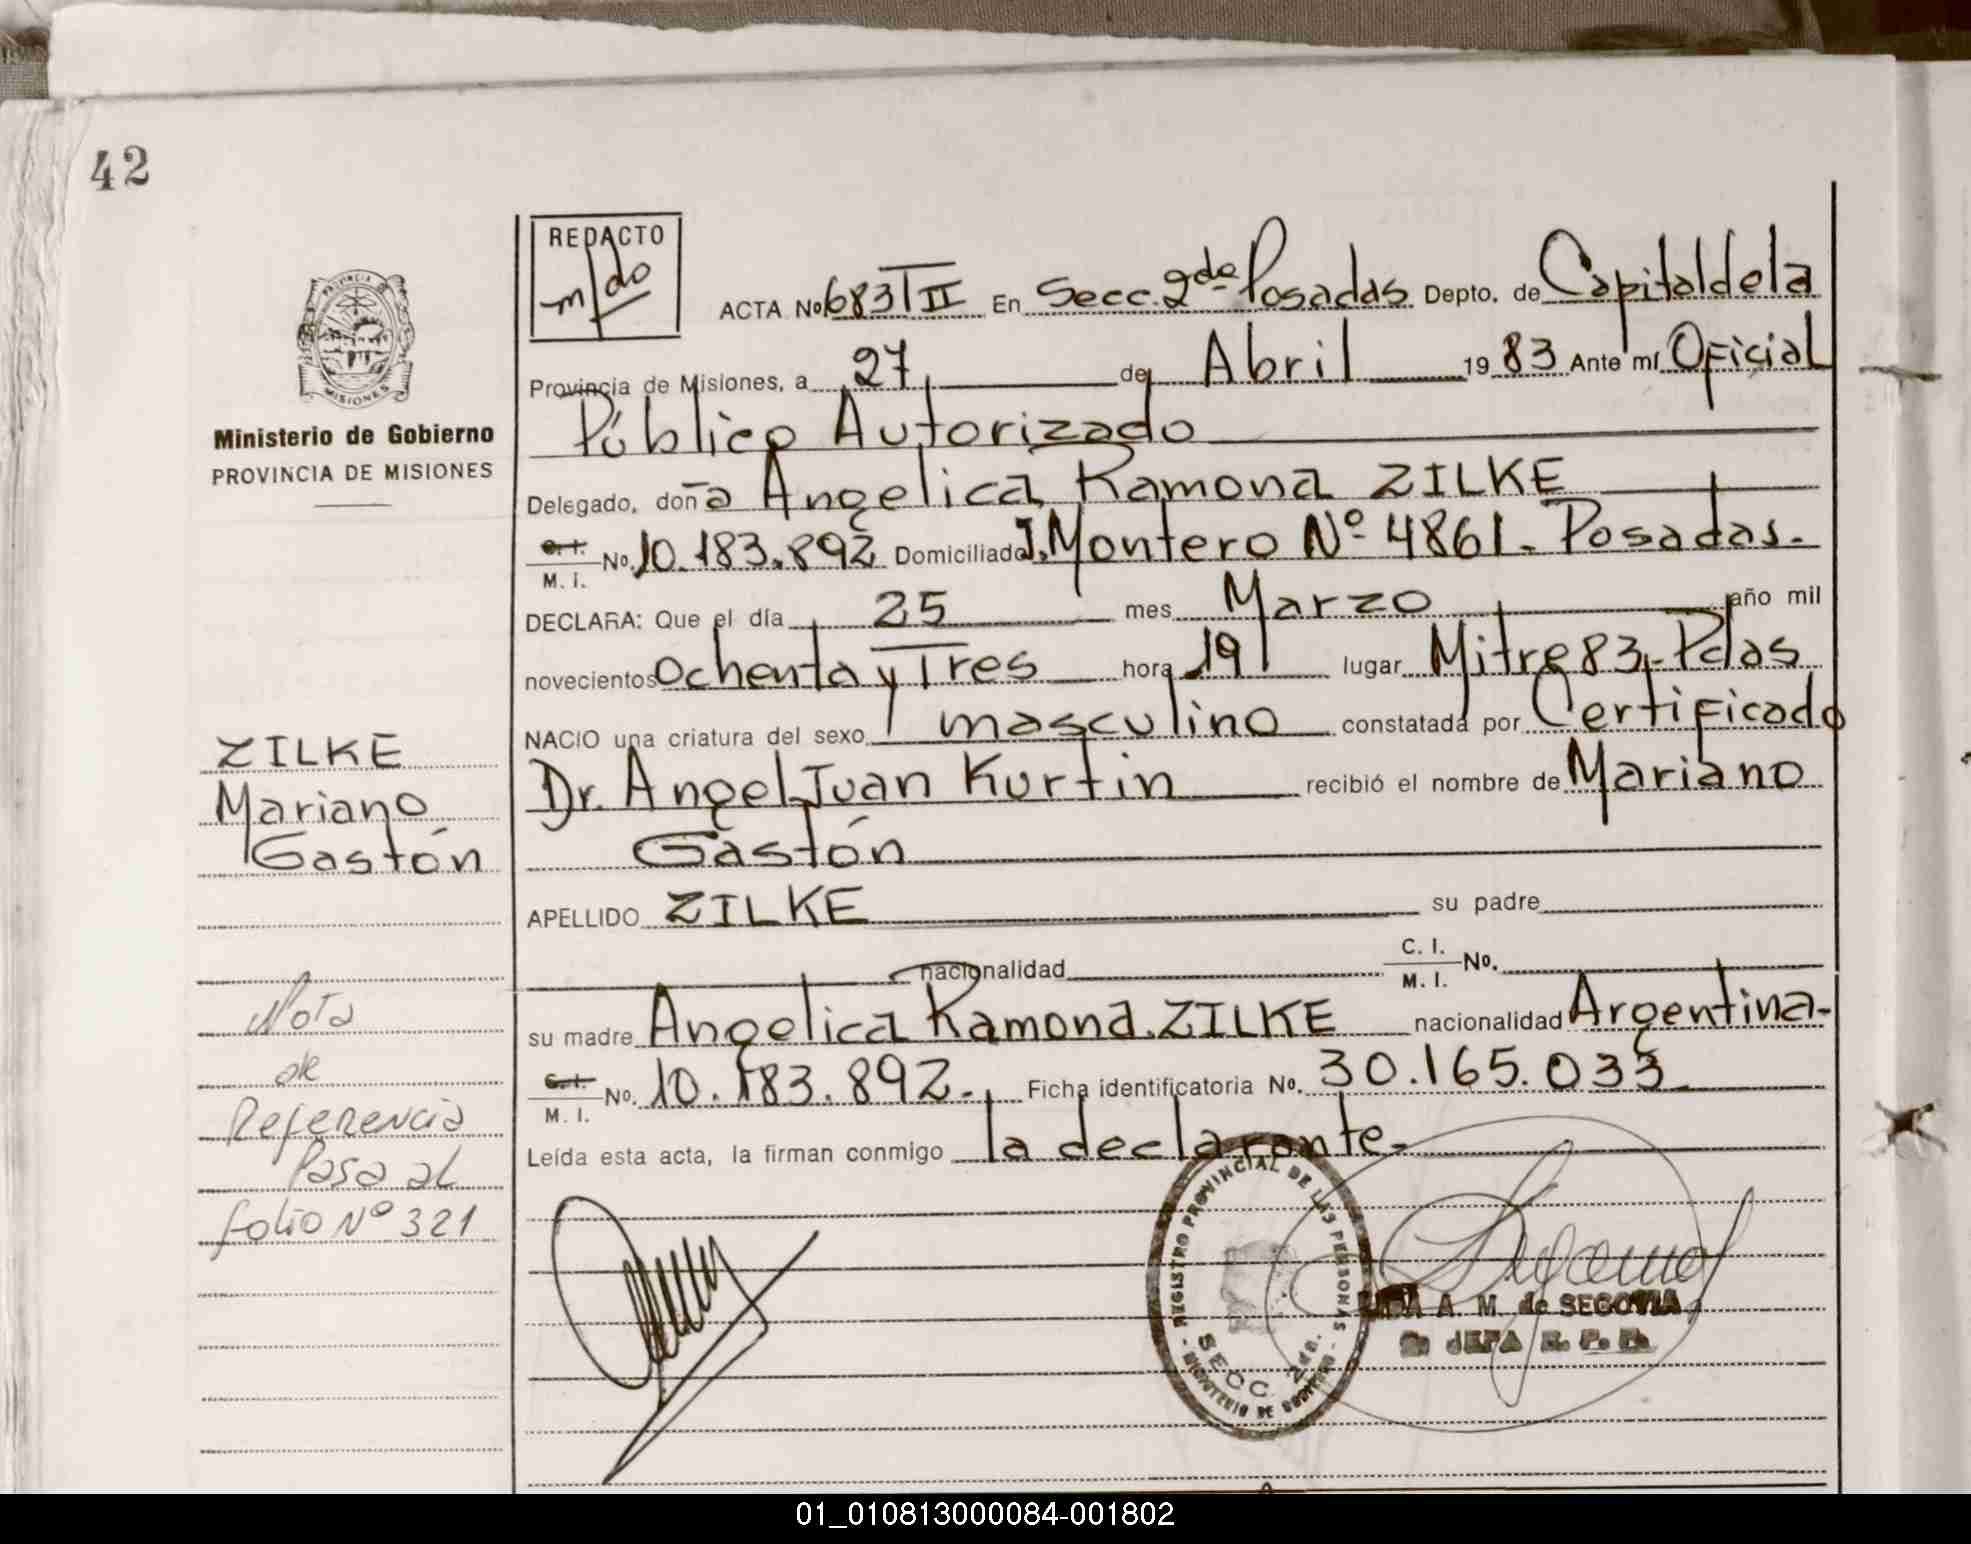 42
REDACTO
m/do
ACTA No 683 T II En Secc. 2da Posadas Depto. de Capital de la
Provincia de Misiones, a 27 de Abril 19 83 Ante mí Oficial
Público Autorizado
Delegado, doña Angelica Ramona ZILKE
C. I. M. I. No. 10.183.892 Domiciliado J. Montero Nº 4861. Posadas.
DECLARA: Que el día 25 mes Marzo año mil
novecientos Ochenta y Tres hora 19 lugar Mitre 83. Pdas
NACIO una criatura del sexo masculino constatada por Certificado
Dr. Angel Juan Kurtin recibió el nombre de Mariano
Gastón
APELLIDO ZILKE su padre
nacionalidad C. I. M. I. No.
su madre Angelica Ramona ZILKE nacionalidad Argentina-
C. I. M. I. No. 10.183.892. Ficha identificatoria No. 30.165.033
Leída esta acta, la firman conmigo la declarante.
PROVINCIA
MISIONES
Ministerio de Gobierno
PROVINCIA DE MISIONES
ZILKE
Mariano
Gastón
Nota
de
Referencia
Pasa al
folio Nº 321
REGISTRO PROVINCIAL DE LAS PERSONAS
SECC. 2da.
MINISTERIO DE GOBIERNO
A. M. de SEGOVIA
JEFA R. P. P.
01_010813000084-001802